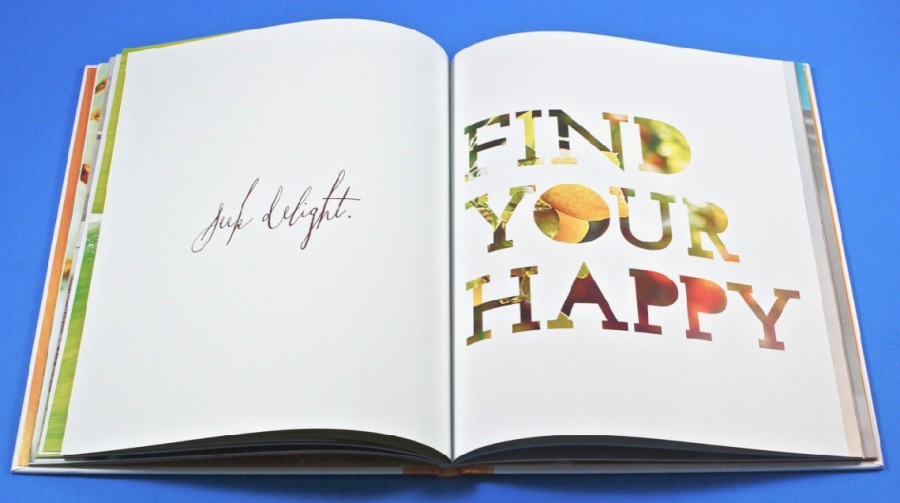 seek delight.
FIND
YOUR
HAPPY